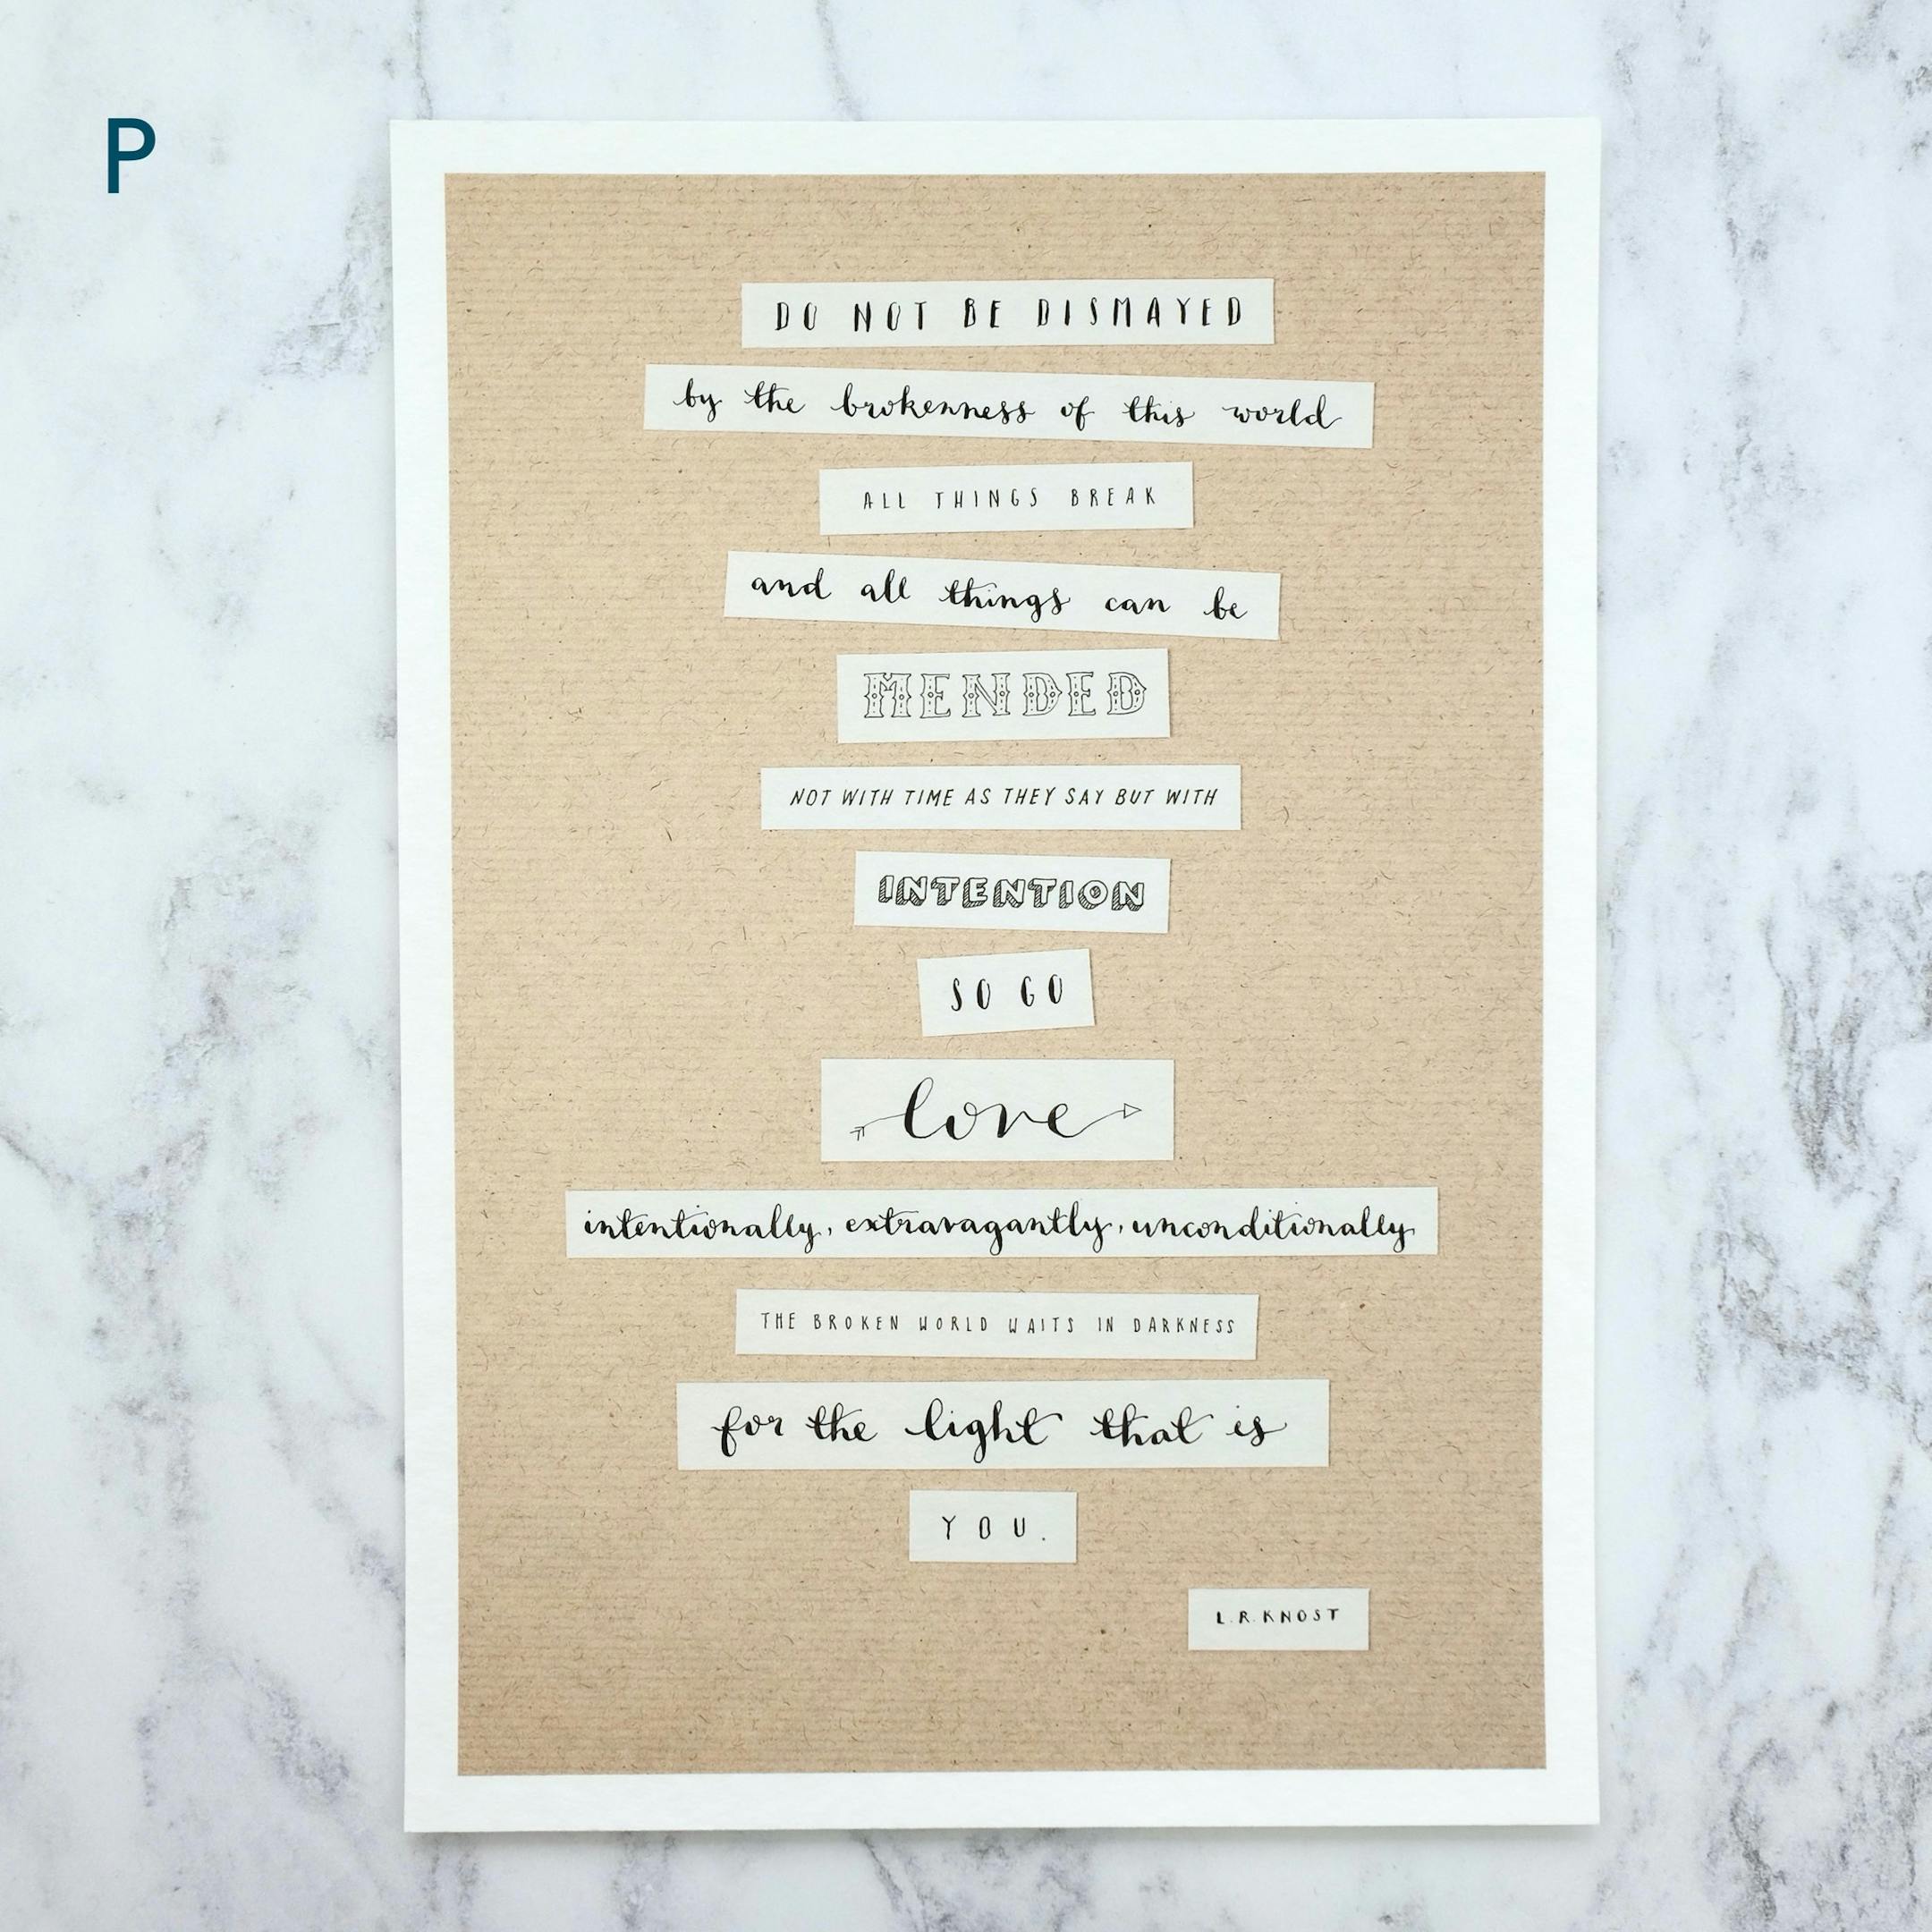 P
DO NOT BE DISMAYED
by the brokenness of this world
ALL THINGS BREAK
and all things can be
MENDED
NOT WITH TIME AS THEY SAY BUT WITH
INTENTION
SO GO
love
intentionally, extravagantly, unconditionally
THE BROKEN WORLD WAITS IN DARKNESS
for the light that is
YOU.
L.R.KNOST